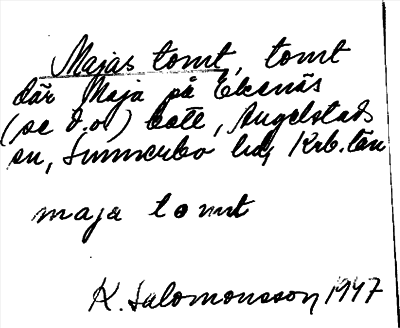 Majas tomt, tomt
där Maja på Ekenäs
(se d.o.) bott, Angelstads
sn, Sunnerbo hd, Krb. län
maja tomt
K. Salomonsson 1947